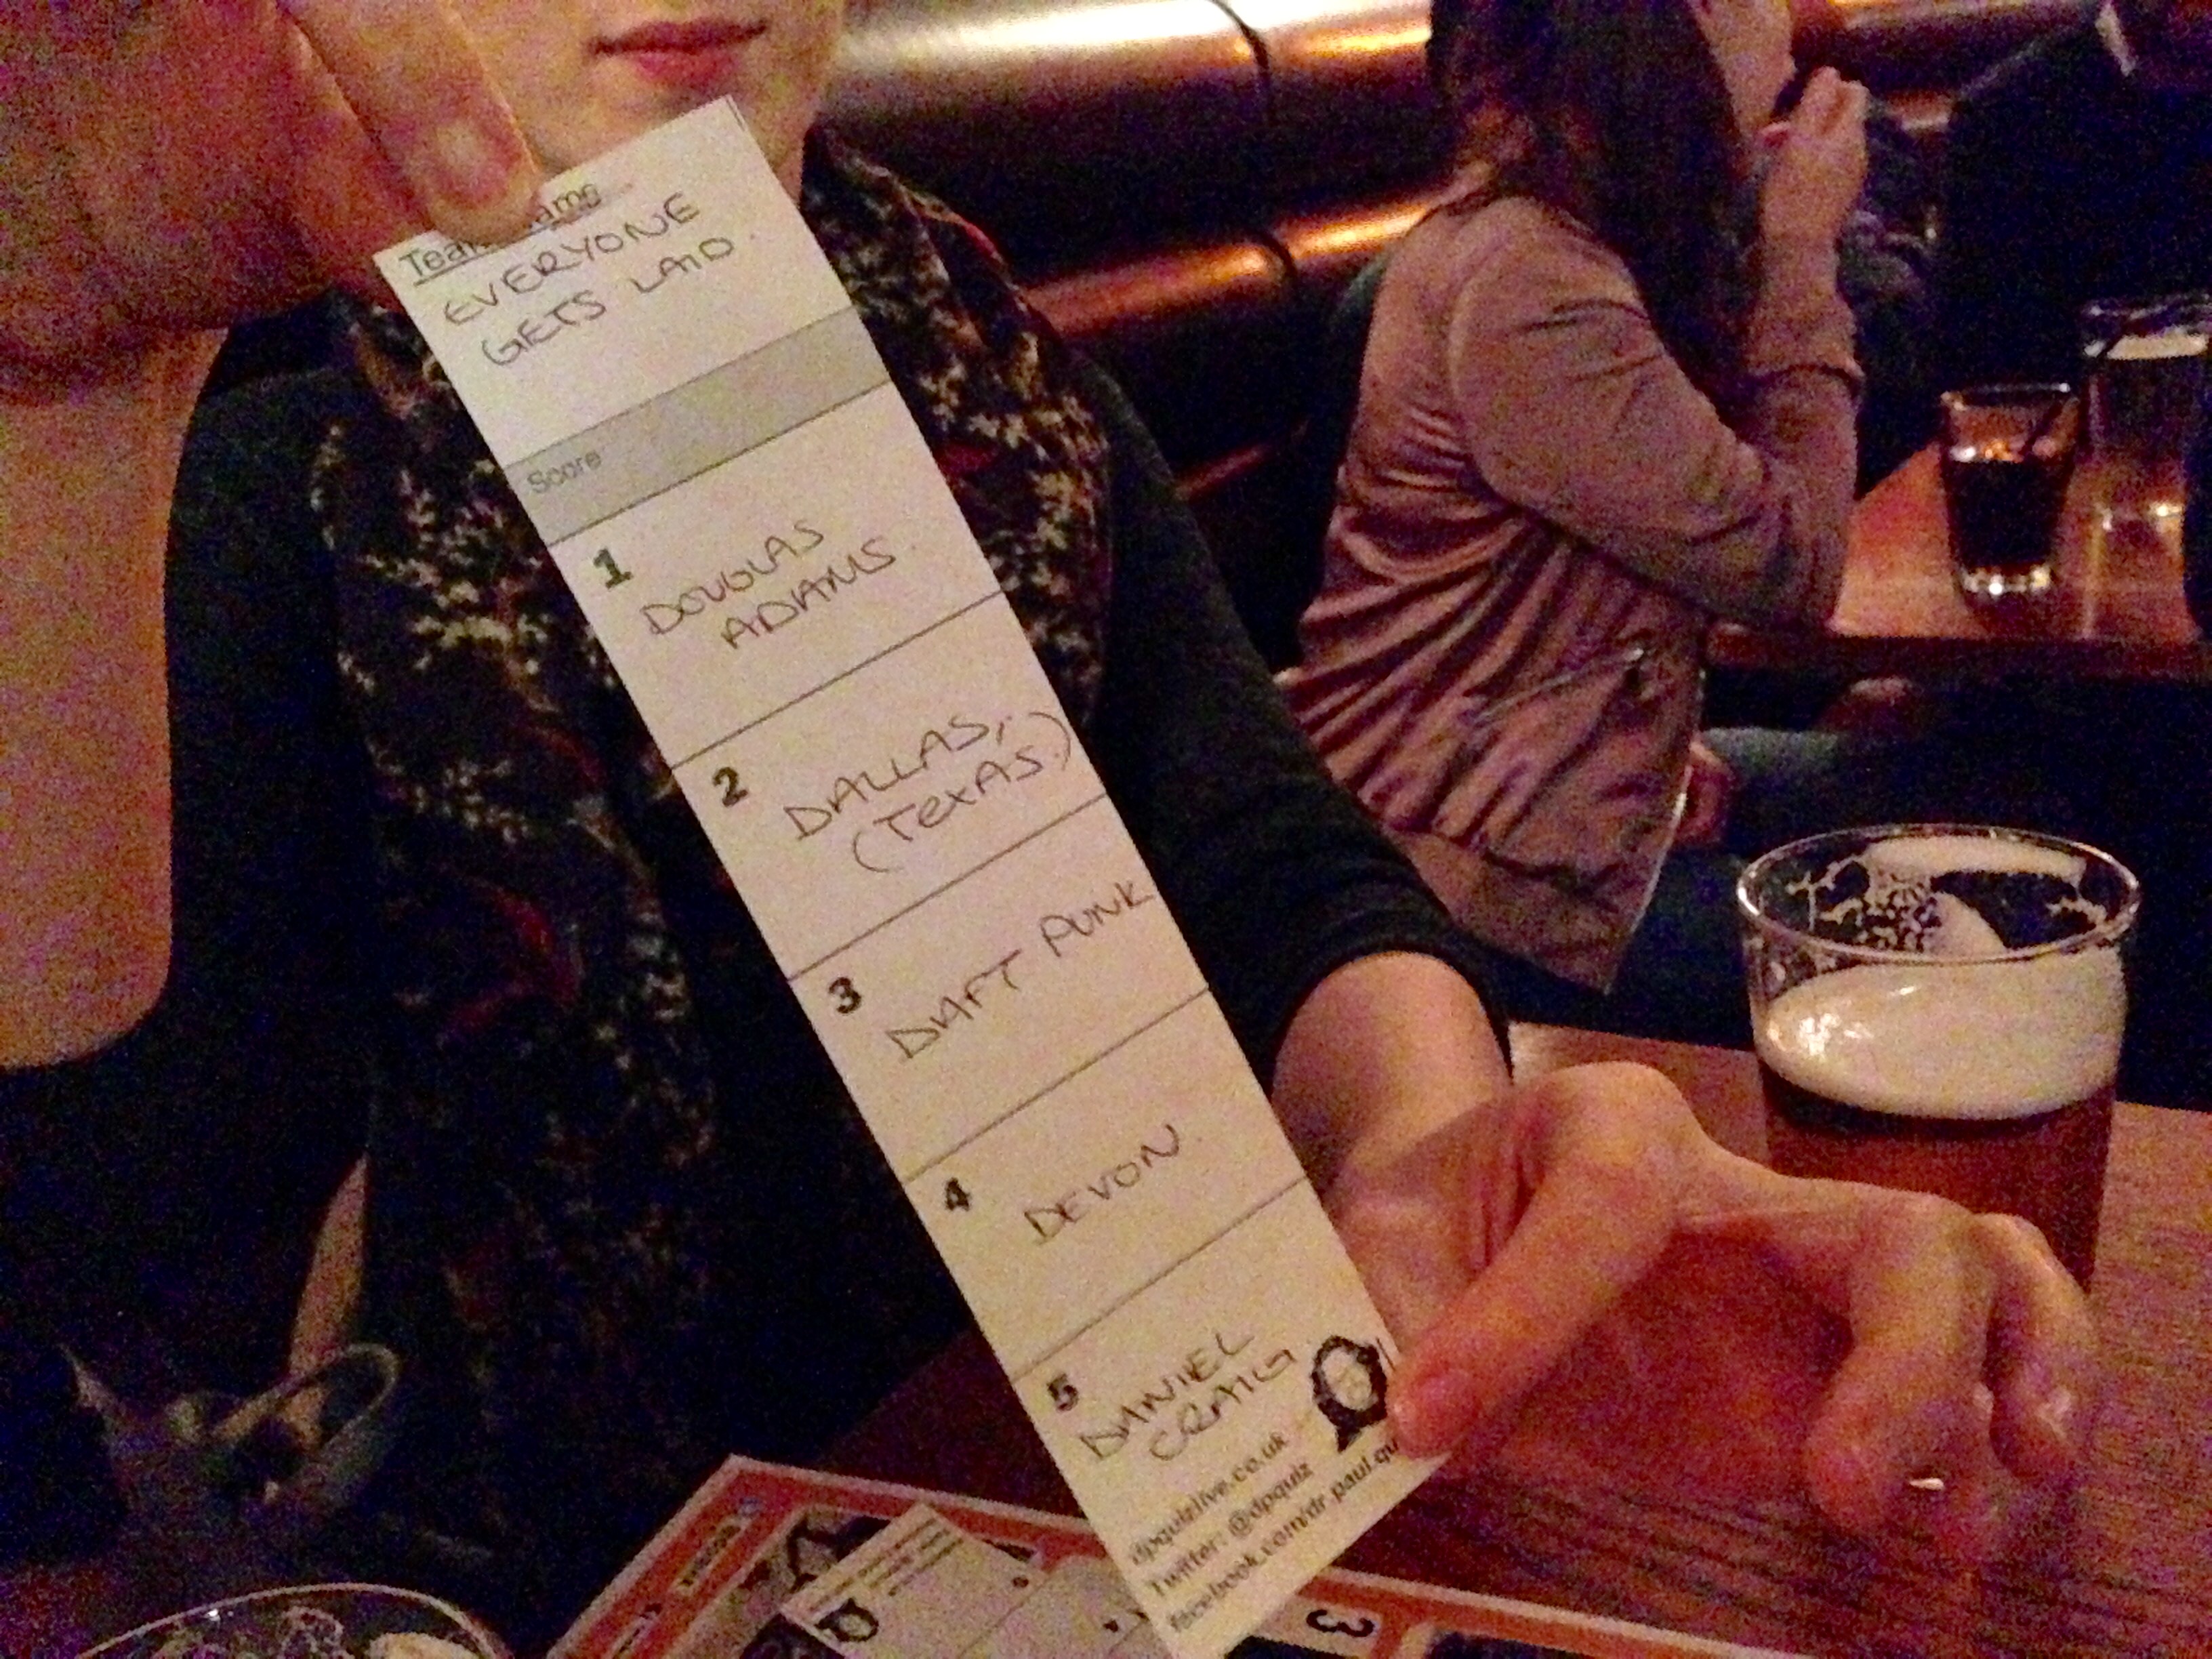 EVERYONE
GETS LAID.
Score
1
DOUGLAS
ADAMS.
2
DALLAS,
(TEXAS.)
3
DAFT PUNK
4
DEVON.
5
DANIEL
CRAIG
dpquizlive.co.uk
Twitter: @dpquiz
facebook.com/dr.paul.qu
3